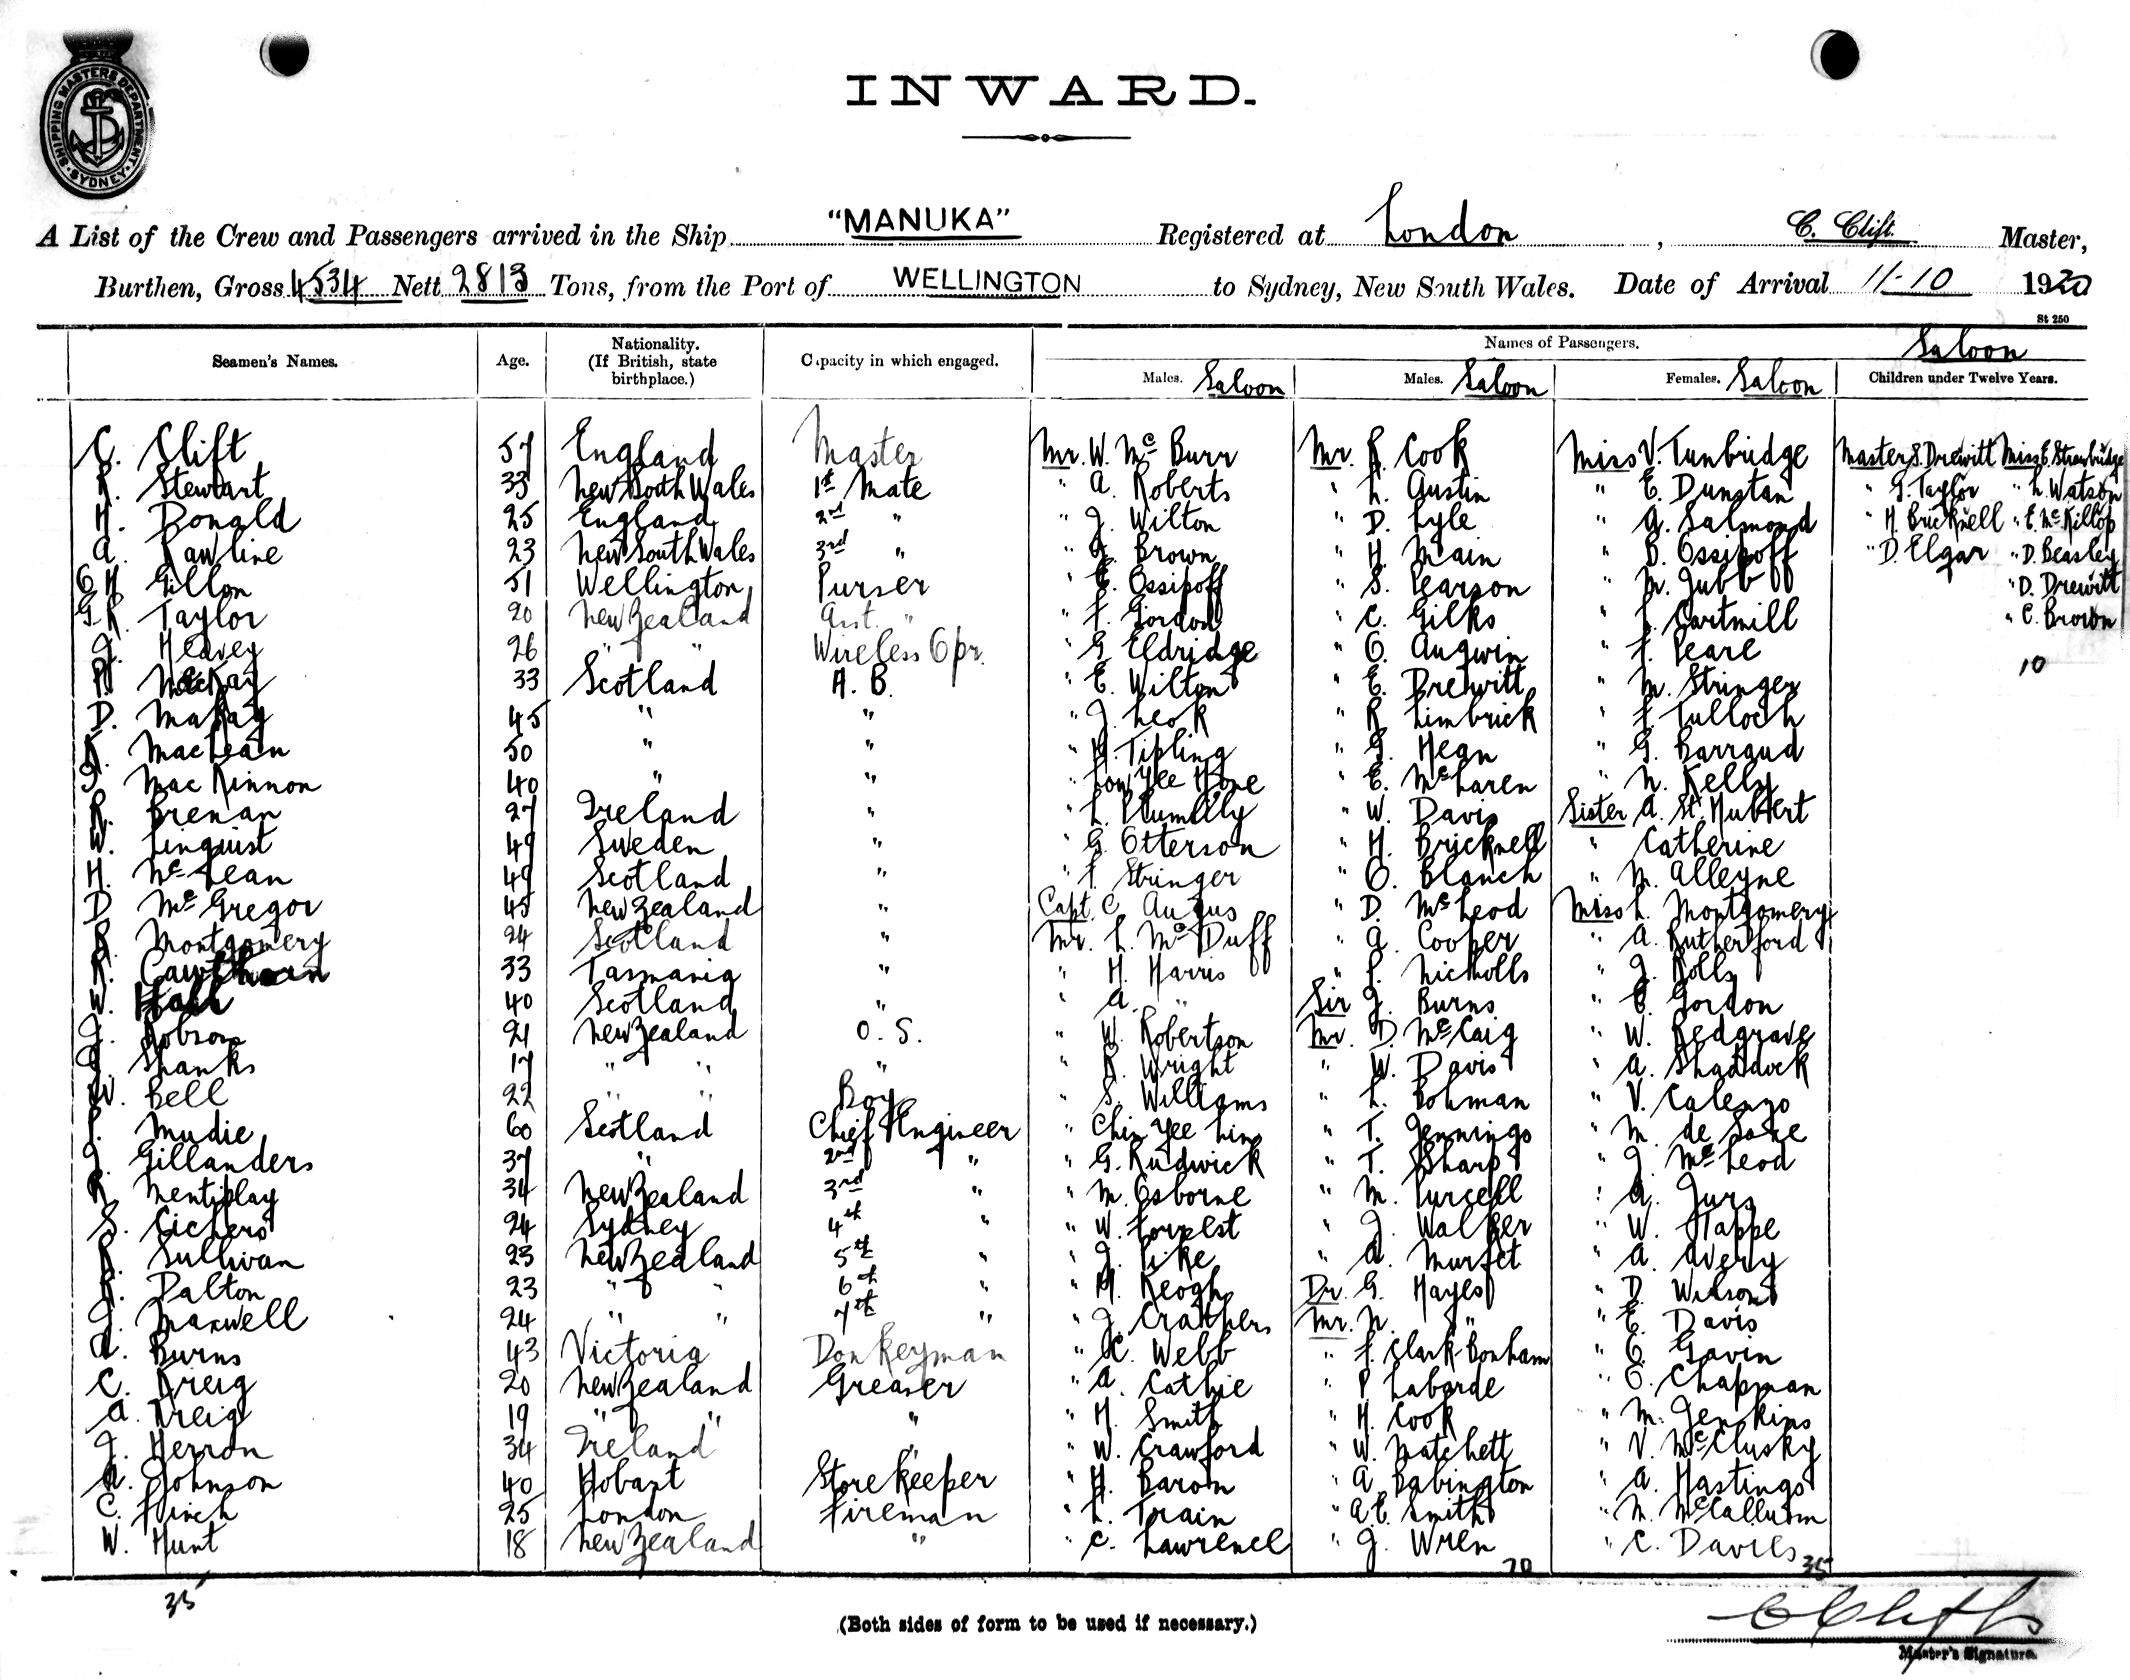 SHIPPING MASTERS DEPARTMENT. SYDNEY.
INWARD.
A List of the Crew and Passengers arrived in the Ship "MANUKA" Registered at London, C. Clift. Master,
Burthen, Gross 4534 Nett 2813 Tons, from the Port of WELLINGTON to Sydney, New South Wales. Date of Arrival 11-10 1920
St 250
Seamen's Names. Age. Nationality. (If British, state birthplace.) Capacity in which engaged. Names of Passengers. Saloon
Males. Saloon Males. Saloon Females. Saloon Children under Twelve Years.
C. Clift 57 England Master Mr. W. Mc Burr Mr. R. Cook Miss V. Tunbridge Master S. Drewitt Miss E. Strawbridge
R. Stewart 33 New South Wales 1st Mate " A. Roberts " L. Austin " E. Dunstan " G. Taylor " L. Watson
H. Donald 25 England 2nd " " J. Wilton " D. Lyle " A. Salmond " H. Bricknell " E. McKillop
A. Rawline 23 New South Wales 3rd " " J. Brown " H. Main " B. Ossipoff " D. Elgar " D. Beasley
C H Gillon 51 Wellington Purser " E. Ossipoff " S. Pearson " M. Jubb " D. Drewitt
G. R. Taylor 20 New Zealand Asst. " " F. Gordon " C. Gilks " L. Cartmill " C. Brown
J. Heavey 26 " " Wireless Opr. " G Eldridge " O. Angwin " F. Pearl 10
P. McKay 33 Scotland A. B. " E. Wilton " E. Drewitt " M. Stringer
D. MaKay 45 " " " J. Leok " R Limbrick " F. Tulloch
R. MacLean 50 " " " H. Tipling " G. Hean " G. Barraud
J MacKinnon 40 " " " Low Yee Hone " E. McLaren " N. Kelly
R. Brenan 27 Ireland " " L. Plumbly " W. Davis Sister A. St. Hubert
W. Linquist 49 Sweden " " G Otterson " H. Bricknell " Catherine
H. McLean 49 Scotland " " F. Stringer " O. Blanch " M. Alleyne
D McGregor 45 New Zealand " Capt. C Augus " D. McLeod Miss L. Montgomery
R. Montgomery 24 Scotland " Mr. L. McDuff " A. Cooper " A. Rutherford
R. Cawthorn 33 Tasmania " " H. Harris " P. Nicholls " J. Rolls
W. Hall 40 Scotland " " A. " Sir J. Burns " E. Gordon
J. Robson 21 New Zealand O. S. " W. Robertson Mr. D. McCaig " W. Redgrave
G. Shanks 17 " " " " R. Wright " W. Davis " A. Shaddock
W. Bell 22 " " Boy " S. Williams " L. Bohman " V. Calenzo
Mudie 60 Scotland Chief Engineer " Chin Yee Ling " T. Jennings " M. de Sone
J. Gillanders 37 " 2nd " " G. Rudwick " T. Sharp " J. McLeod
R. Mentiplay 34 New Zealand 3rd " " M. Osborne " M. Purcell " A. Jurs
S. Cichero 24 Sydney 4th " " W. Forrest " J. Walker " W. Tappe
R. Sullivan 23 New Zealand 5th " " J. Pike " A. Murfet " A. Avery
R. Dalton 23 " " 6th " " H. Keogh Dr. G. Hayes " D. Wilson
J. Maxwell 24 " " 7th " " J. Crathers Mr. N. " " E. Davis
A. Burns 43 Victoria Donkeyman " C. Webb " F. Clark Bonham " E. Gavin
C. Kreig 20 New Zealand Greaser " A. Cathie " P. Laborde " E. Chapman
A. Kreig 19 " " " " H. Smith " H. Cook " M. Jenkins
J. Herron 34 Ireland " " W. Crawford " W. Matchett " V. McClusky
A. Johnson 40 Hobart Storekeeper " H. Baron " A. Babington " A. Hastings
C. Finch 25 London Fireman " L. Train " A. E. Smith " M. McCallum
W. Hunt 18 New Zealand " " C. Lawrence " J. Wren " C. Davies
35 70 35
(Both sides of form to be used if necessary.)
C Clift
Master's Signature.